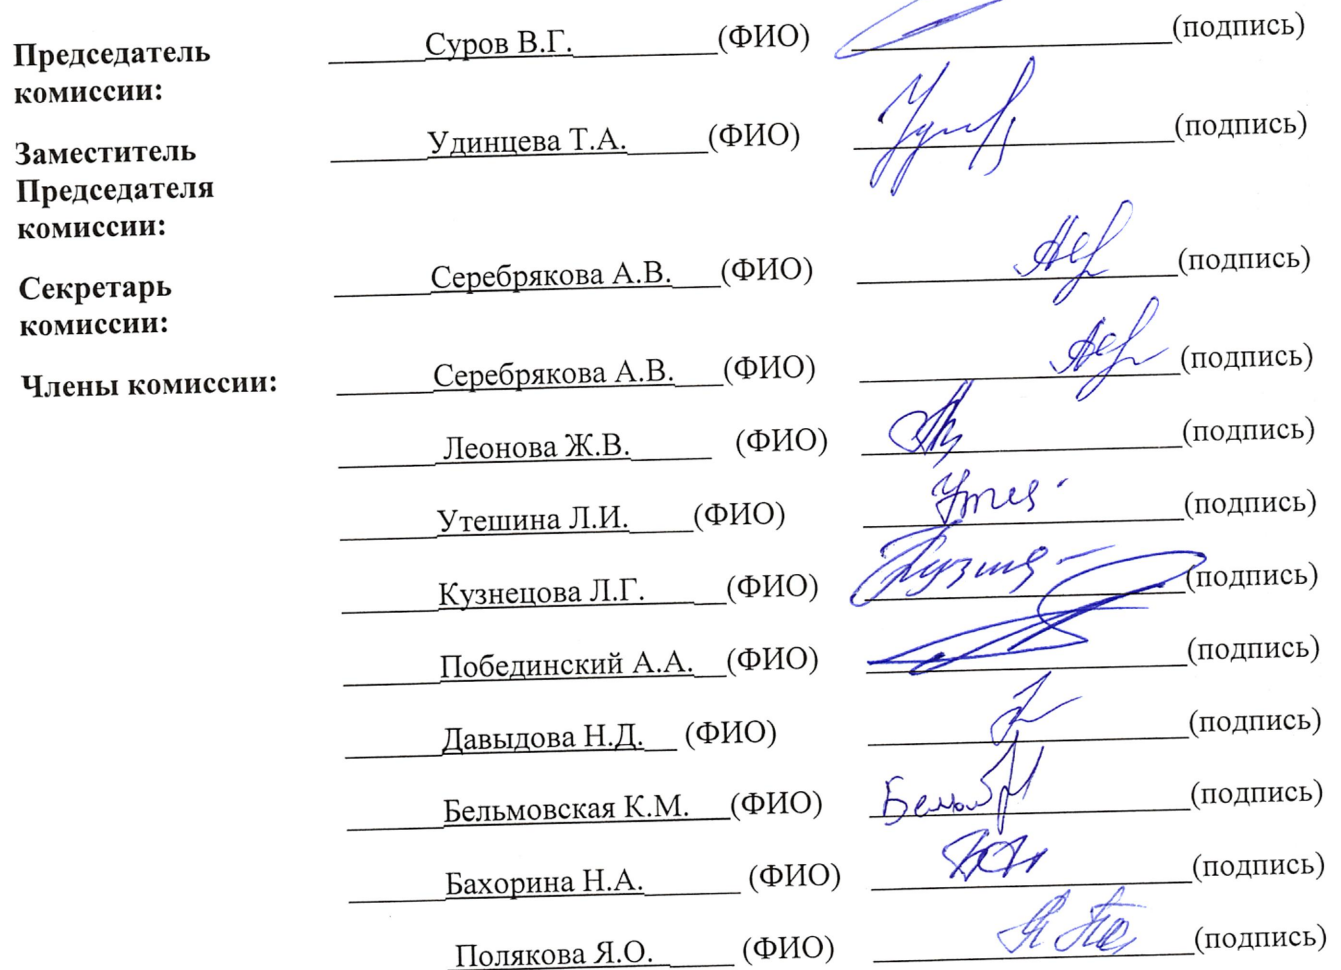 Председатель комиссии: Суров В.Г. (ФИО) (подпись)
Заместитель Председателя комиссии: Удинцева Т.А. (ФИО) (подпись)
Секретарь комиссии: Серебрякова А.В. (ФИО) (подпись)
Члены комиссии: Серебрякова А.В. (ФИО) (подпись)
Леонова Ж.В. (ФИО) (подпись)
Утешина Л.И. (ФИО) (подпись)
Кузнецова Л.Г. (ФИО) (подпись)
Побединский А.А. (ФИО) (подпись)
Давыдова Н.Д. (ФИО) (подпись)
Бельмовская К.М. (ФИО) (подпись)
Бахорина Н.А. (ФИО) (подпись)
Полякова Я.О. (ФИО) (подпись)